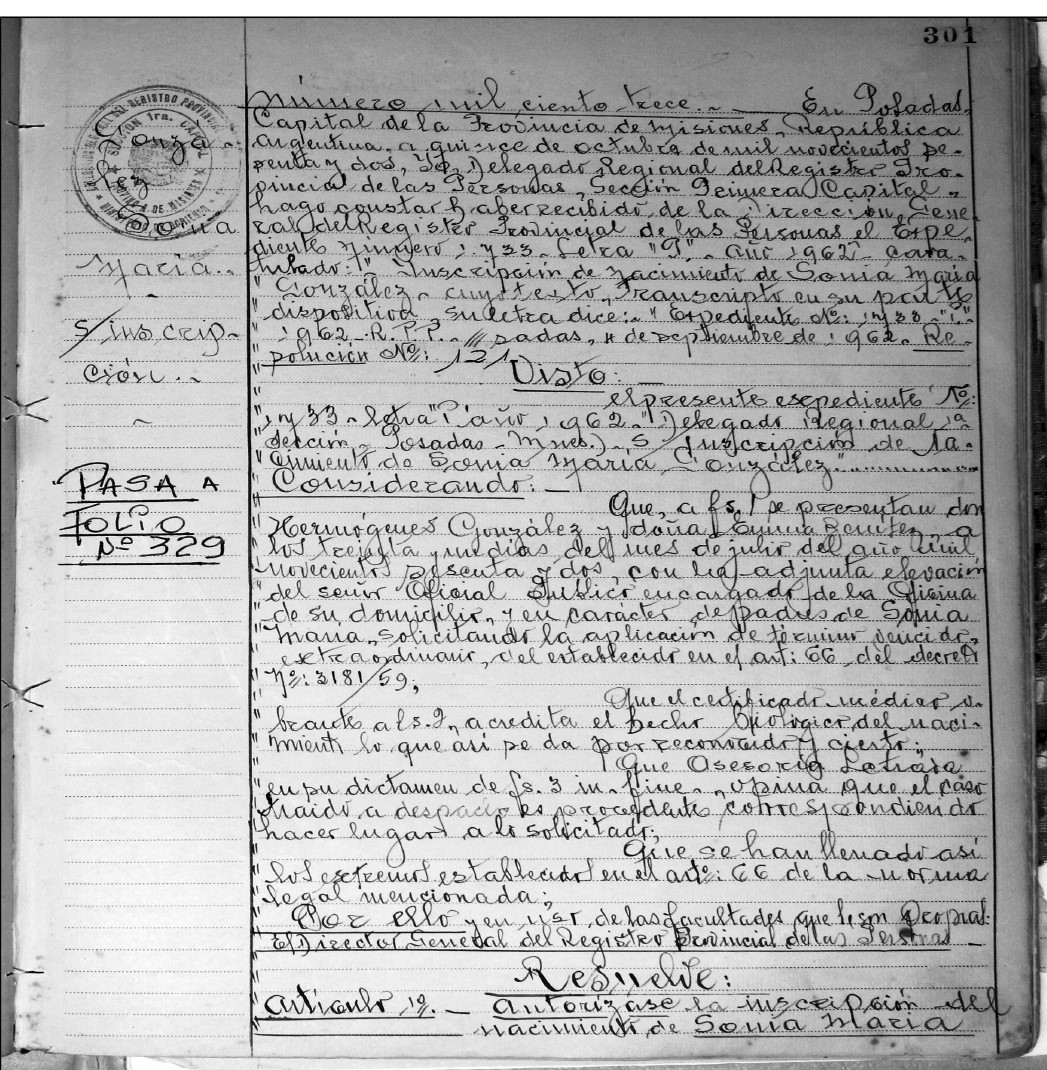 301
Gonzá-
lez
Sonia
María.-
S/inscrip-
ción.-
PASA A
FOLIO
Nº 329
Número mil ciento trece.- En Posadas,
Capital de la Provincia de Misiones, República
Argentina, a quince de octubre de mil novecientos se-
senta y dos, Yo, Delegado Regional del Registro Pro-
vincial de las Personas, Sección Primera Capital,
hago constar haber recibido de la Dirección Gene-
ral del Registro Provincial de las Personas el Expe-
diente Número: 1733 - Letra "P" - año 1962 - cara-
tulado: "Inscripción de Nacimiento de Sonia María
González - cuyo texto, Transcripto en su parte
dispositiva, su letra dice: "Expediente Nº: 1733 -
"1962 - R.P.P. - ///sadas, 4 de septiembre de 1962. Re-
solución Nº: 121/
Visto:
el presente expediente Nº:
"1733 - letra "P" año 1962 - "Delegado Regional 1ª
"Sección - Posadas - Mnes.) - S/ Inscripción de Na-
"cimiento de Sonia María González"
"Considerando:
Que, a fs. 1 se presentan don
"Hermógenes González y doña Emma Benítez, a
"los treinta y un días del mes de julio del año mil
"novecientos sesenta y dos, con la adjunta elevación
"del señor Oficial Público encargado de la Oficina
"de su domicilio, y en carácter de padres de Sonia
"María, solicitando la aplicación de término vencido,
"extraordinario, del establecido en el art: 66 del decreto
"Nº: 3181/59;
Que el certificado médico o-
"brante a fs. 2, acredita el hecho biológico del naci-
"miento lo que así se da por reconocido y cierto;
Que Asesoría Letrada
"en su dictamen de fs. 3 in-fine, opina que el caso
"traído a despacho es procedente correspondiendo
"hacer lugar a lo solicitado;
Que se han llenado así
"los extremos establecidos en el artº: 66 de la norma
"legal mencionada;
"Por ello y en uso de las facultades que le son
"El Director General del Registro Provincial de las Personas
Resuelve:
"Artículo 1º. - Autorízase la inscripción del
nacimiento de Sonia María